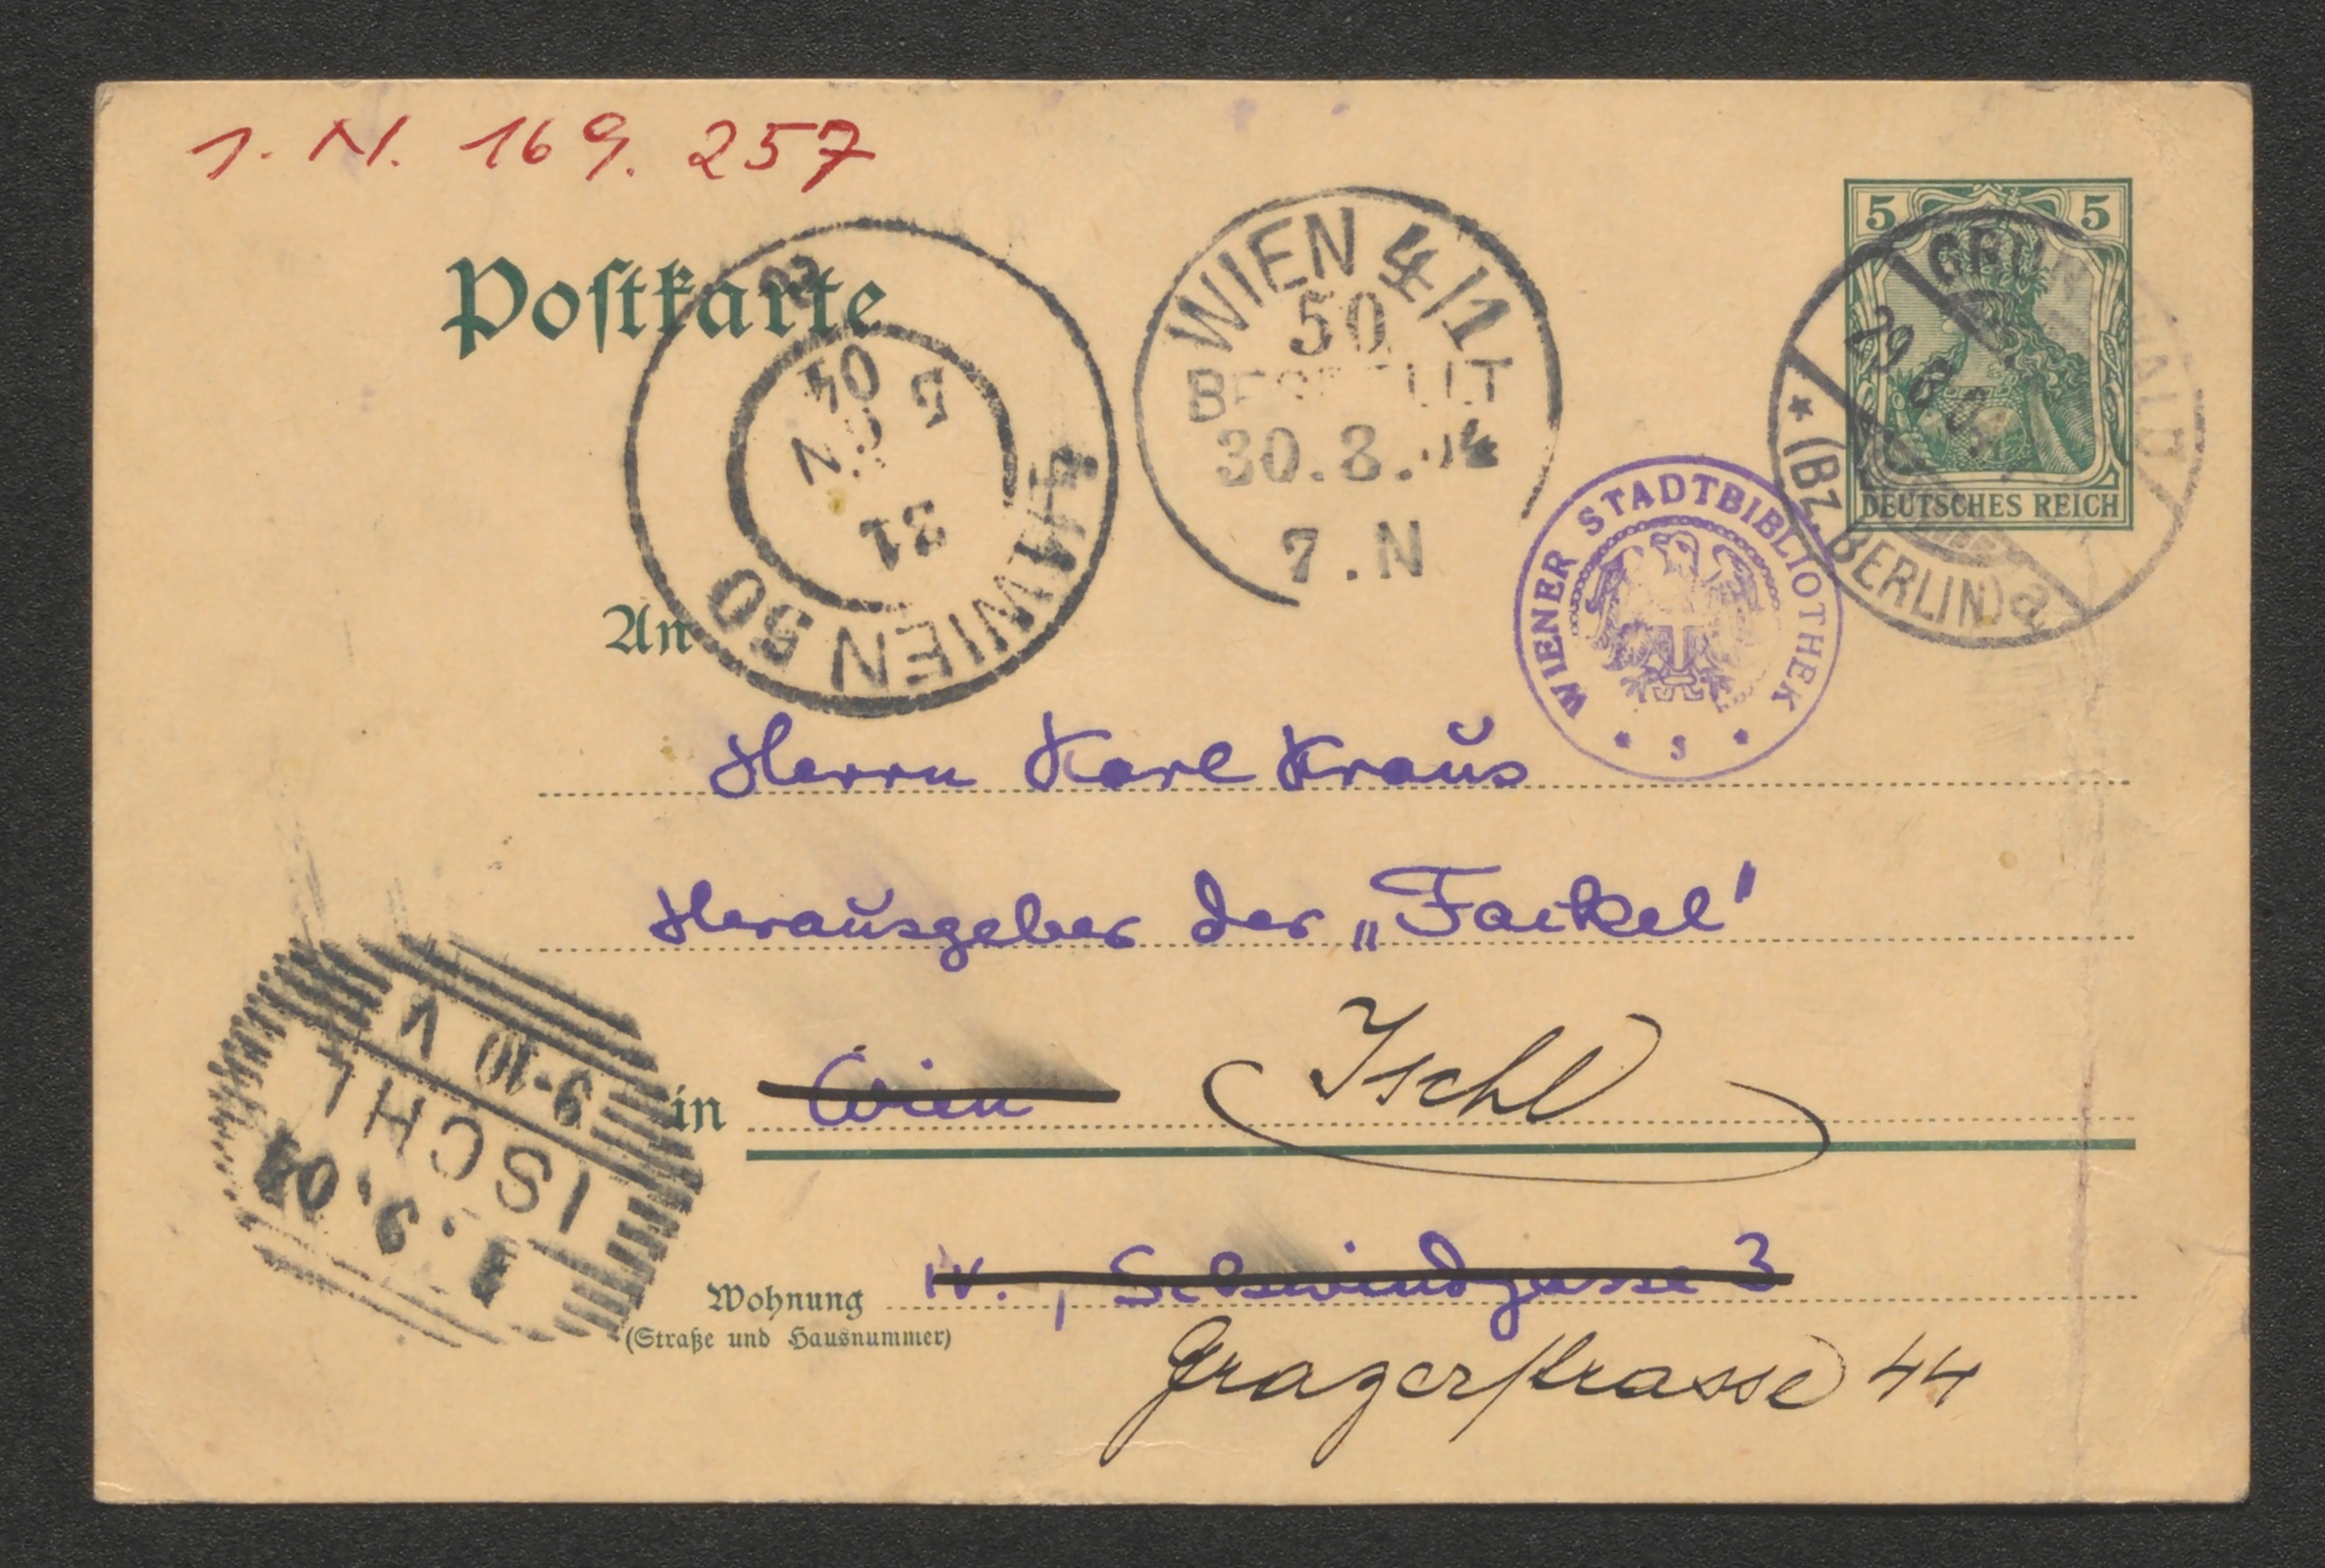 I. N. 169. 257
Postkarte
WIEN 4/1
50
BESTELLT
30.8.04
7.N
5 5
DEUTSCHES REICH
29.8.04
* (BZ. BERLIN) a
4/1 WIEN 50
21
5 N
04
WIENER STADTBIBLIOTHEK
An
Herrn Karl Kraus
Herausgeber der „Fackel"
in Wien Ischl
Wohnung IV., Schwindgasse 3
(Straße und Hausnummer)
Grazerstrasse 44
1.9.04
ISCHL
9-10 V